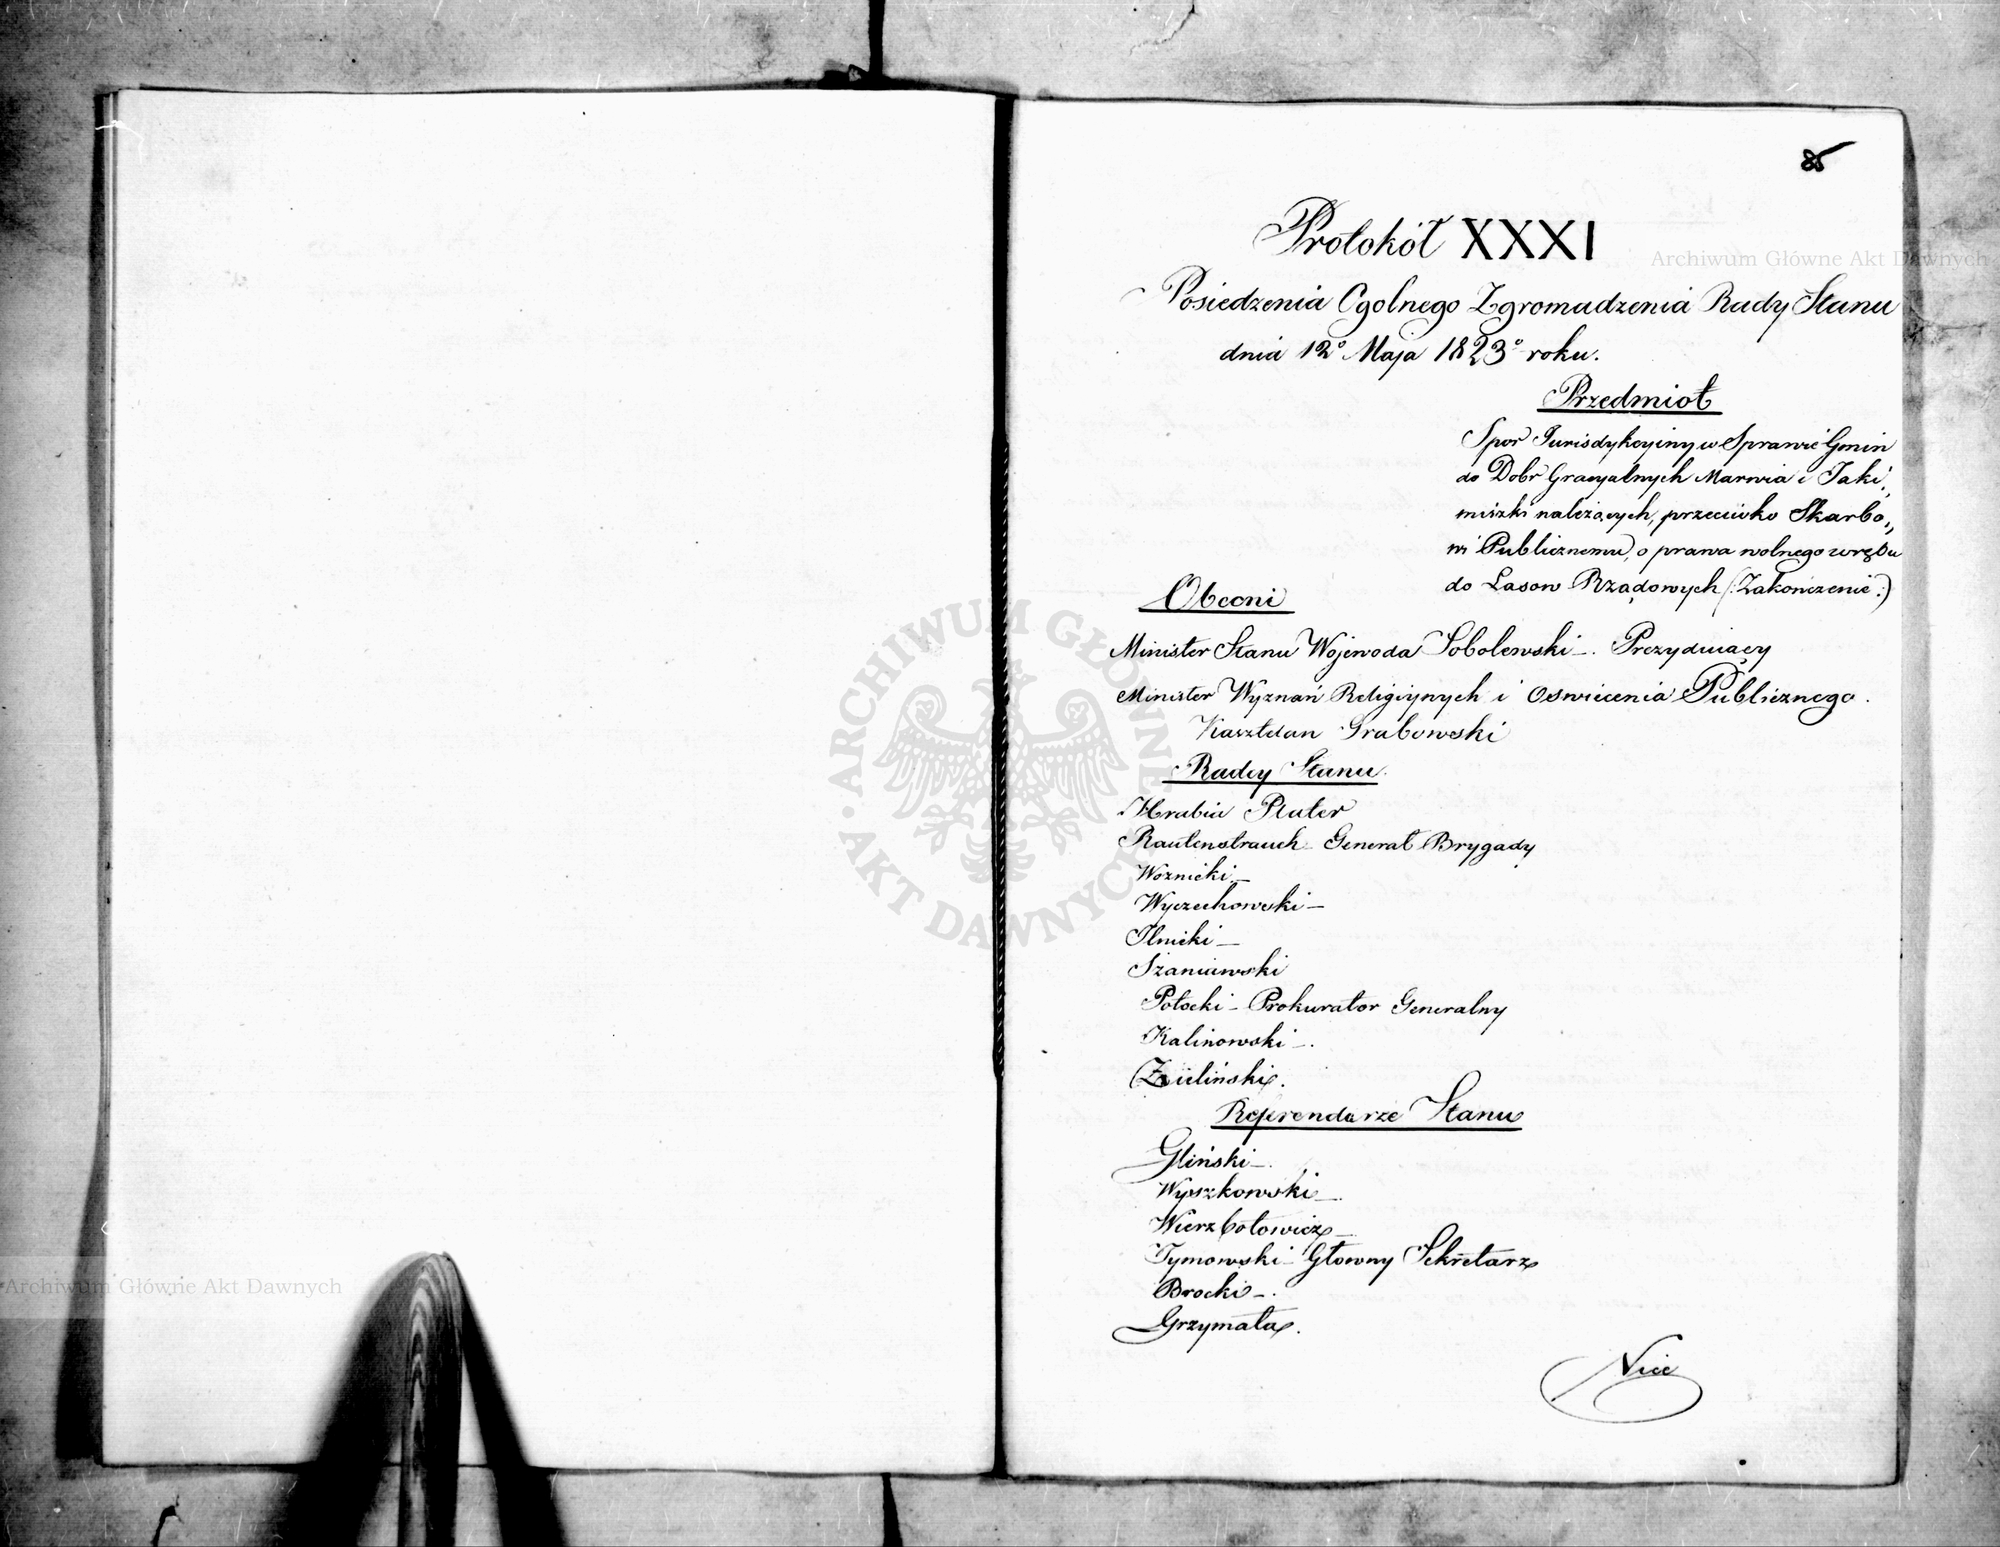 85
Protokół XXXI
Posiedzenia Ogolnego Zgromadzenia Rady Stanu
dnia 12° Maja 1823° roku.
Przedmiot
Spor Jurisdykcyiny w Sprawie Gmin
do Dobr Gracyalnych Marwia i Jaki„
miszki należących, przeciwko Skarbo„
wi Publicznemu, o prawa wolnego wrębu
do Lasow Rządowych (:Zakończenie:)
Obecni
Minister Stanu Wojewoda Sobolewski –. Prezyduiący
Minister Wyznań Religiynych i Oswiecenia Publicznego.
Kasztelan Grabowski
Radcy Stanu.
Hrabia Plater
Rautenstrauch Generał Brygady
Woznicki –
Wyczechowski –
Ilnicki –
Szaniawski
Potocki – Prokurator Generalny
Kalinowski –.
Zieliński.
Referendarze Stanu
Gliński –.
Wyszkowski –.
Wierzbołowicz –
Tymowski – Głowny Sekretarz
Brocki –.
Grzymała.
Nie
Archiwum Główne Akt Dawnych
Archiwum Główne Akt Dawnych
ARCHIWUM GŁÓWNE AKT DAWNYCH